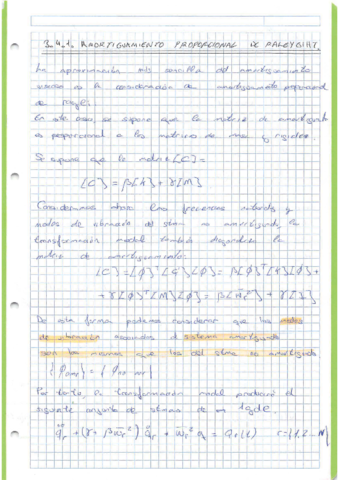 3.4.1. AMORTIGUAMIENTO PROPORCIONAL DE RALEYGHT.
La aproximación más sencilla del amortiguamiento
viscoso es la consideración de amortiguamiento proporcional
de
En este caso, se supone que la matriz de amortiguamto
es proporcional a las matrices de masa y rigidez.
Se supone que la matriz [C] =
[C] = β[K] + γ[M]
Consideramos ahora las frecuencias naturales y
modos de vibración del stma no amortiguado, la
transformación modal también diagonaliza la
matriz de amortiguamiento:
[C] = [φ]ᵀ[C][φ] = β[φ]ᵀ[K][φ] +
+ γ[φ]ᵀ[M][φ] = β[w̄r²] + γ[I]
De esta forma podemos considerar que los modos
de vibración asociados al sistema amortiguado
son los mismos que los del stma no amortiguado
Por tanto, la transformación modal producirá el
siguiente conjunto de stmas de un 1gde.
q̈r + (γ + βw̄r²) q̇r + w̄r² qr = Qr(t) r={1,2...N}